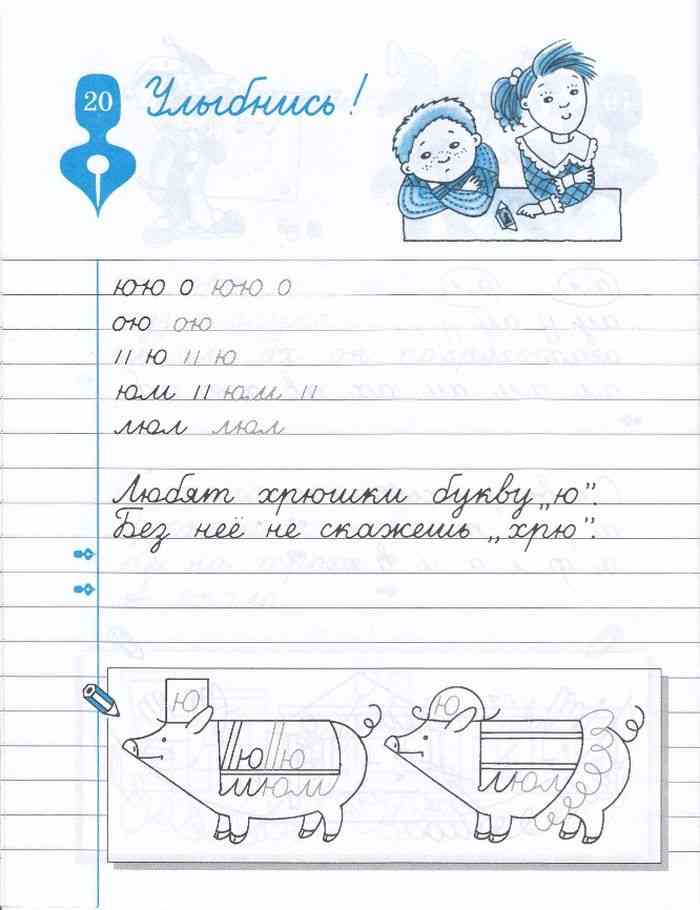 20 Улыбнись!
юю о юю о
ою ою
ıı ю ıı ю
юм ıı юм ıı
люл люл
Любят хрюшки букву „ю”.
Без неё не скажешь „хрю”.
ю ю
ю ю
июм июл